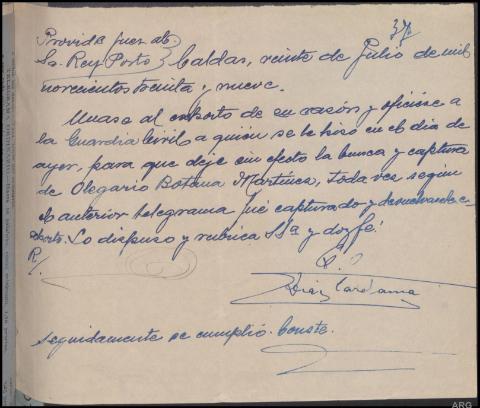 37
Provida Juez ac.
Sr. Rey Porto } Caldas, veinte de Julio de mil
novecientos treinta y nueve.
Unase al exhorto de su razón y oficiese a
la Guardia Civil a quien se le hizo en el dia de
ayer, para que deje sin efecto la busca y captura
de Olegario Botana Martinez, toda vez según
el anterior telegrama fué capturado y devuelvase el
exhorto. Lo dispuso y rubrica SSª y doy fé
R/.
Diaz Tardama
Seguidamente se cumplió. Conste.
ARG